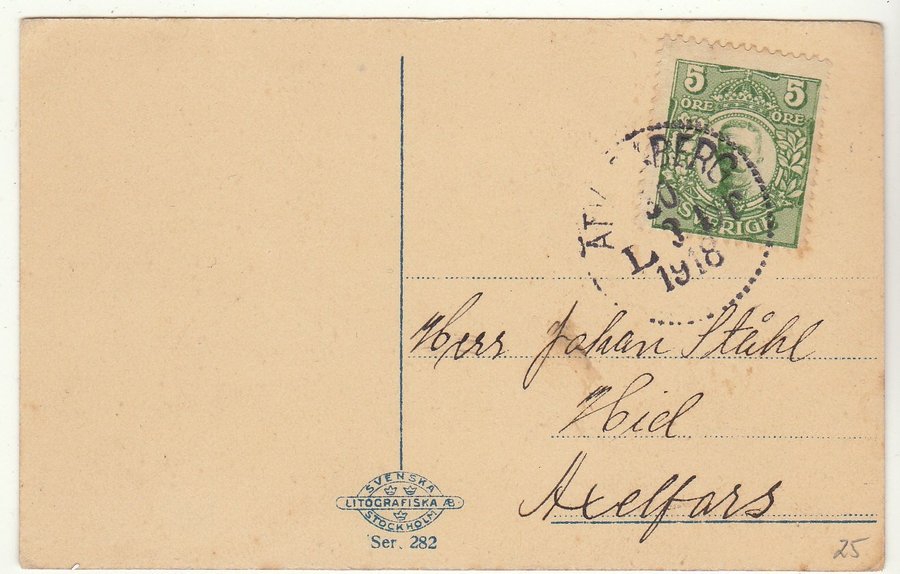 5 5
ÖRE ÖRE
SVERIGE
30
L
1918
Herr Johan Ståhl
Hid
Axelfors
SVENSKA
LITOGRAFISKA AB
STOCKHOLM
Ser. 282
25